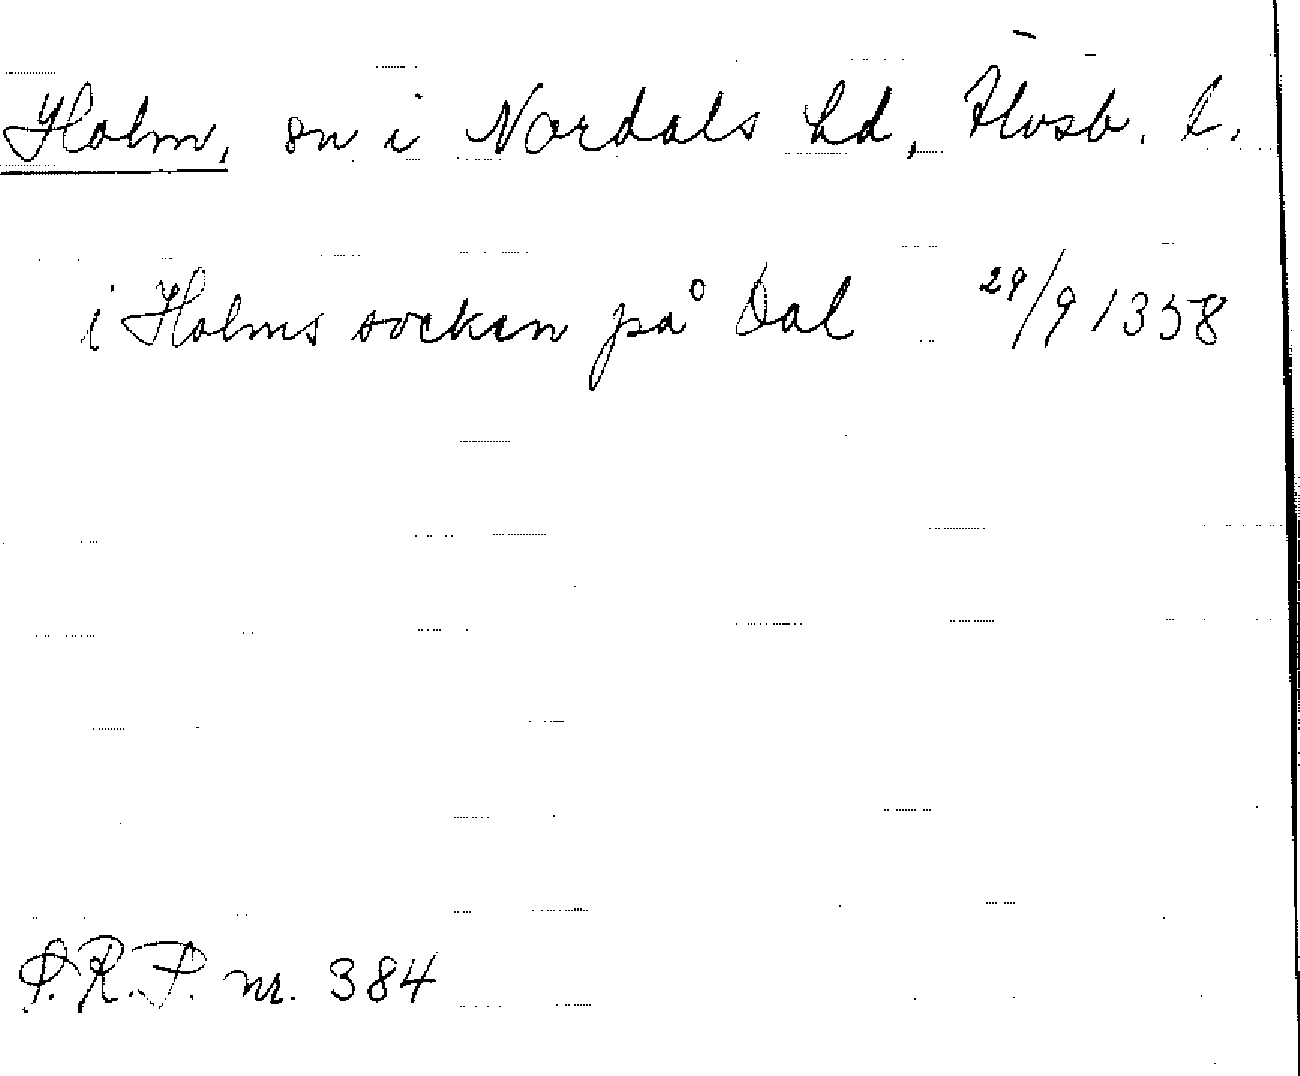 Holm, sn i Nordals hd, Älvsb. l.
i Holms socken på Dal 29/9 1358
P.R.P. nr. 384